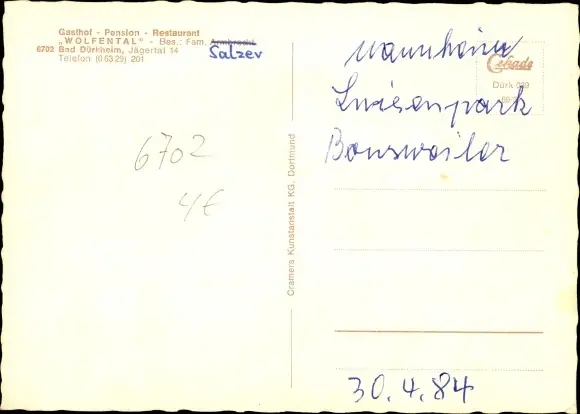 Gasthof - Pension - Restaurant
„WOLFENTAL" - Bes.: Fam. Armbrecht
Salzev
6702 Bad Dürkheim, Jägertal 14
Telefon (0 63 29) 201
Mannheim
Luisenpark
Bonsweiler
Cekade
Dürk 
6702
4€
Cramers Kunstanstalt KG, Dortmund
30.4.84